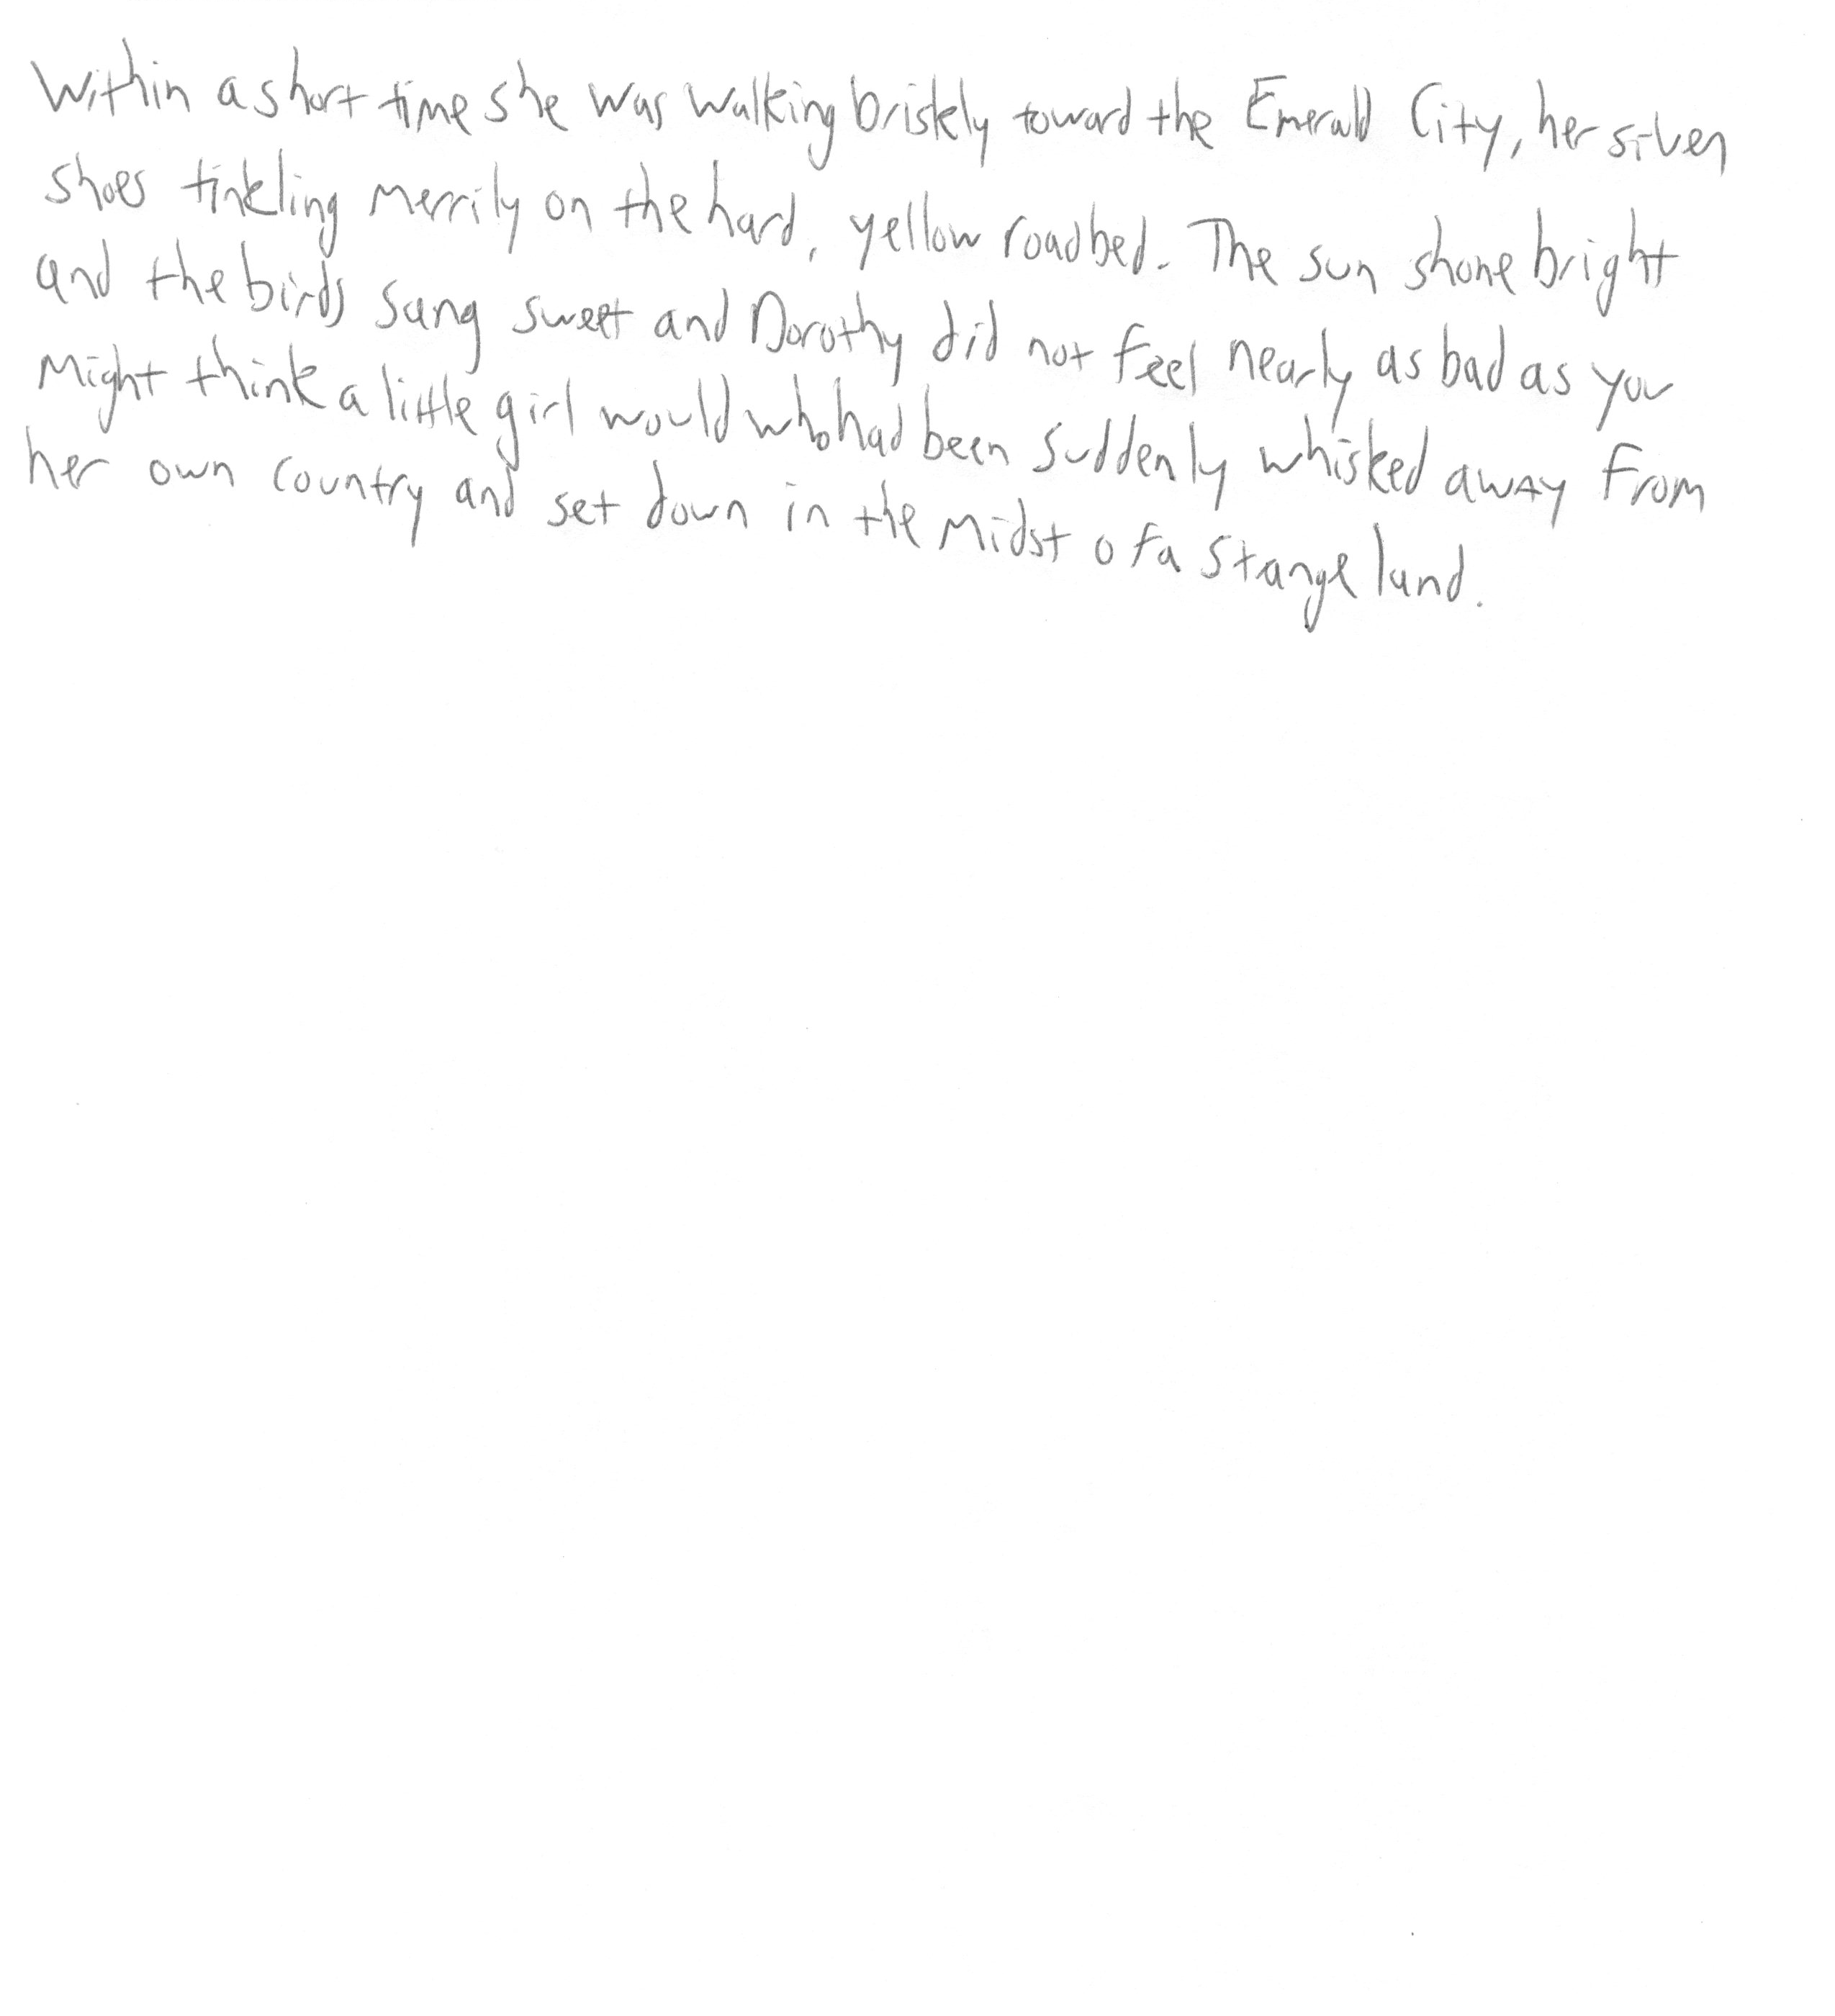 Within a short time she was walking briskly toward the Emerald City, her silver
shoes tinkling merrily on the hard, yellow roadbed. The sun shone bright
and the birds sang sweet and Dorothy did not feel nearly as bad as you
might think a little girl would who had been suddenly whisked away from
her own country and set down in the midst of a stange land.